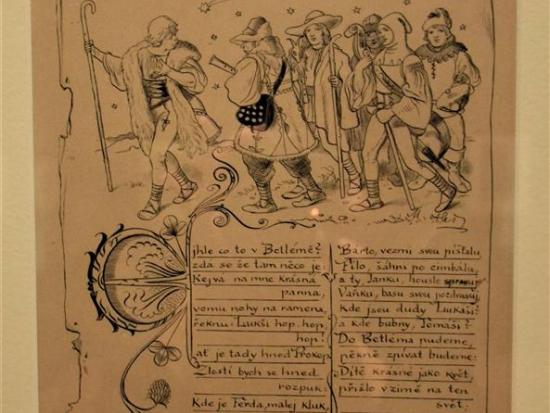 jhle co to v Betlémě?
zda se že tam něco je.
Kejvá na mne krásná
panna,
vemu nohy na ramena,
řeknu i Lukši hop, hop,
hop!
ať je tady hned Prokop
Zlostí bych se hned
rozpuk.
Kde je Ferda, malej kluk,
Barto, vezmi swu píšťalu
Filo, šáhni po cimbálu,
a ty Janku, housle spravuj
Vaňku, basu swu pozdravuj,
Kde jsou dudy Lukáši?
a kde bubny, Tomáši?
Do Betléma pudeme,
pěkně zpívat budeme:
Dítě krásné jako květ,
přišlo v zimě na ten
svět.